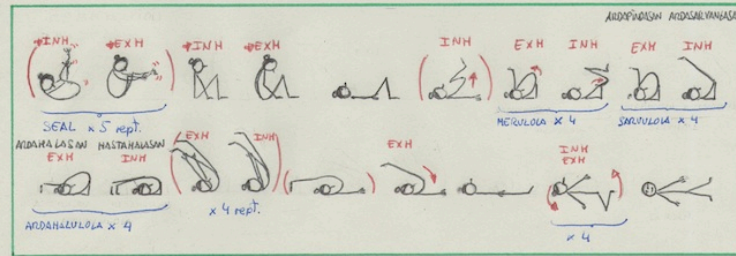 ARDAPINDASAN ARDASARVANGASA
INH EXH INH EXH INH EXH INH EXH INH
SEAL x 5 rept. MERULOLA x 4 SARVULOLA x 4
ARDAHALASAN HASTAHALASAN
EXH INH EXH INH EXH INH
EXH
x 4 rept.
ARDAHALULOLA x 4 x 4